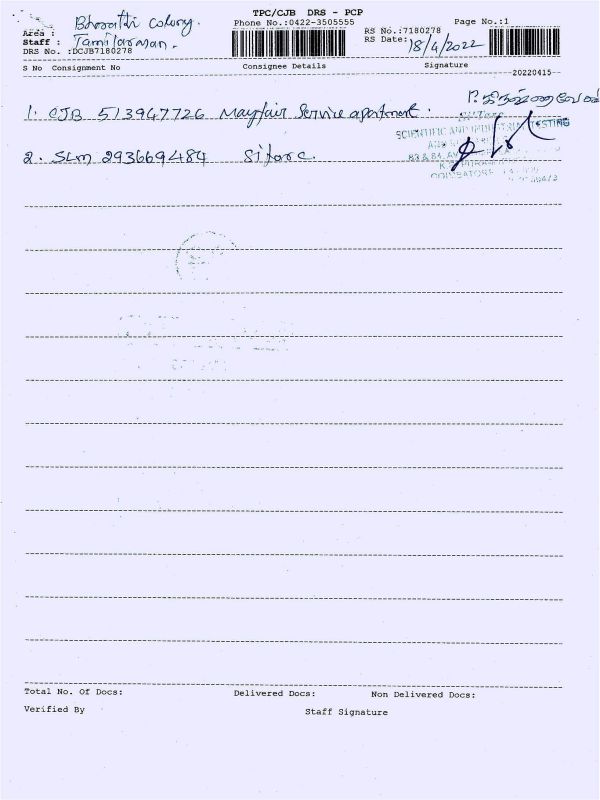 TPC/CJB DRS - PCP
Area : Bharathi Colony. Phone No.:0422-3505555 Page No.:1
Staff : Tamilarasan. RS No.:7180278
DRS No. :DCJB7180278 RS Date: 18/4/2022
S No Consignment No Consignee Details Signature
20220415
1. CJB 513947726 Mayfair Service apartment.
2. SLM 293669484 Sitarc.
SCIENTIFIC AND TESTING
COIMBATORE
Total No. Of Docs: Delivered Docs: Non Delivered Docs:
Verified By Staff Signature